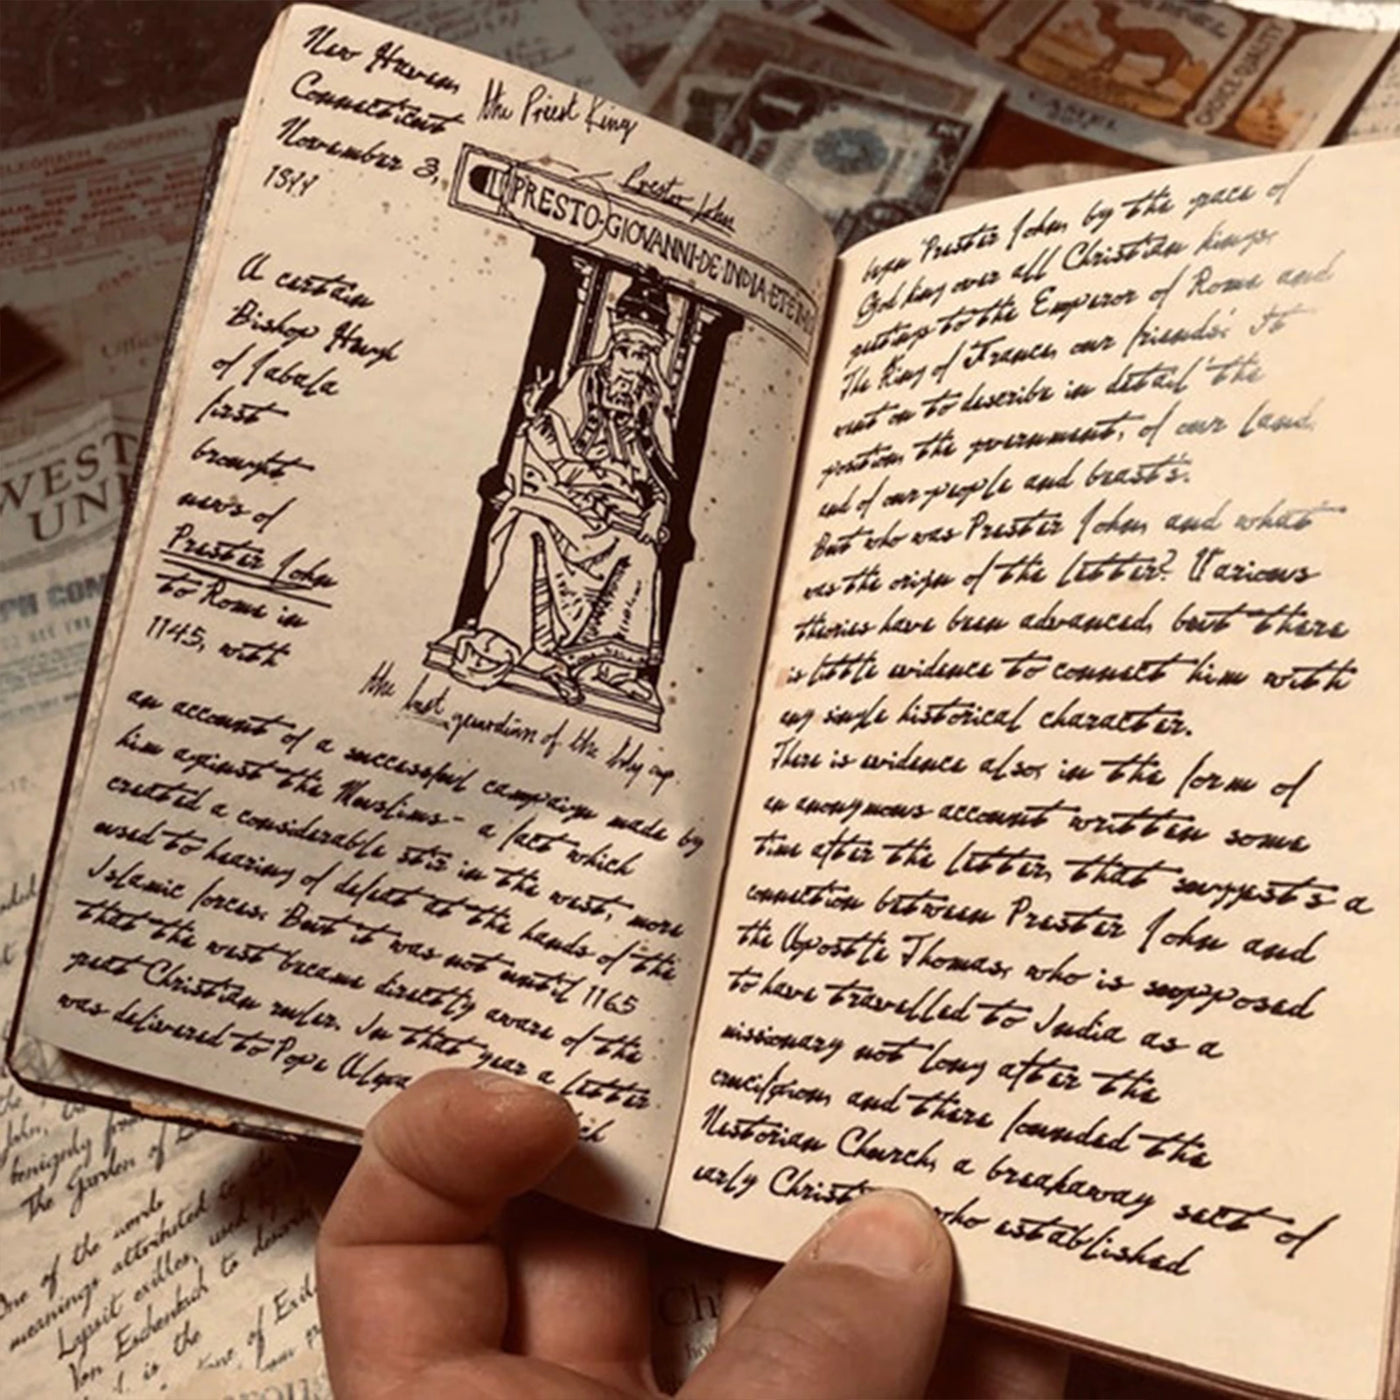 New Haven,
Connecticut
November 3,
the Priest King
Prestor John
PRESTO·GIOVANNI·DE·INDIA·ET·ET
A certain
Bishop Hugh
of Jabala
first
brought
news of
Prester John
to Rome in
1145, with
the last guardian of the holy cup.
an account of a successful campaign made by
him against the Muslims - a fact which
created a considerable stir in the west, more
used to hearing of defeat at the hands of the
Islamic forces. But it was not until 1165
that the west became directly aware of the
great Christian ruler. In that year a letter
was delivered to Pope
began 'Prester John, by the grace of
God king over all Christian kings,
greetings to the Emperor of Rome and
The King of France, our friends.' It
went on to describe in detail 'the
position, the government, of our land,
and of our people and beasts'.
But who was Prester John, and what
was the origin of the letter? Various
theories have been advanced, but there
is little evidence to connect him with
any single historical character.
There is evidence also, in the form of
an anonymous account written some
time after the letter, that suggests a
connection between Prester John and
the Apostle Thomas, who is supposed
to have travelled to India as a
missionary not long after the
crucifixion, and there founded the
Nestorian Church, a breakaway sect of
early who established
WEST
UN
CHOICE QUALITY
benignly
The Garden of
One of the words
meanings attributed to
Lapsit exilles, used
Von Eschenbach to
is the
of Exil
Ch